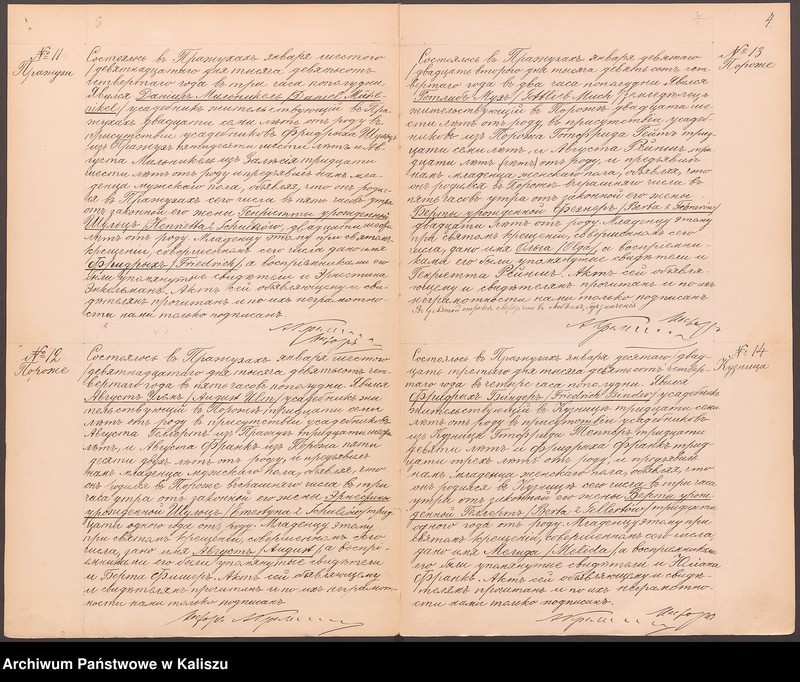 4
№ 11
Пражухи
Состоялось въ Пражухахъ января шестого
/девятнадцатаго дня тысяча девятьсотъ
четвертаго года въ три часа пополудни.
Явился Даніилъ Мильникель /Daniel Milnikel/ усадебникъ жительствующій въ Пра-
жухахъ двадцати семи лѣтъ отъ роду въ
присутствіи усадебниковъ Фридриха Шульцъ
изъ Пражухъ пятидесяти шести лѣтъ и Ав-
густа Мильникель изъ
шести лѣтъ отъ роду и предъявилъ намъ мла-
денца мужескаго пола, объявляя, что онъ родил-
ся въ Пражухахъ сего числа въ пять часовъ утра
отъ законной его жены Генріетты урожденной
Шульцъ /Henrietta z Schulzów/ двадцати
лѣтъ отъ роду. Младенцу этому при святомъ
крещеніи, совершенномъ сего числа дано имя
Фридрихъ /Friedrich/ а воспріемниками его
были упомянутые свидѣтели и Эрнестина
Энкельманъ. Актъ сей объявляющему и сви-
дѣтелямъ прочитанъ и по ихъ неграмотно-
сти нами только подписанъ.
№ 12
Пороже
Состоялось въ Пражухахъ января шестого
/девятнадцатаго дня тысяча девятьсотъ чет-
вертаго года въ пять часовъ пополудни. Явился
Августъ /August / усадебникъ жи-
тельствующій въ Порожѣ тридцати семи
лѣтъ отъ роду въ присутствіи усадебниковъ
Августа Геллертъ изъ Пражухъ тридцати
лѣтъ, и Августа Франкъ изъ Порожа пяти
десяти двухъ лѣтъ отъ роду, и предъявилъ
намъ младенца мужескаго пола, объявляя, что
онъ родился въ Порожѣ вчерашняго числа въ три
часа утра отъ законной его жены Эрнестины
урожденной Шульцъ /Ernestyna z Schulzów/ трид-
цати одного года отъ роду. Младенцу этому
при святомъ крещеніи, совершенномъ сего
числа, дано имя Августъ /August/ а воспрі-
емниками его были упомянутые свидѣтели
и Берта Фишеръ. Актъ сей объявляющему
и свидѣтелямъ прочитанъ и по ихъ неграмот-
ности нами только подписанъ
№ 13
Пороже
Состоялось въ Пражухахъ января девятаго
/двадцать второго дня тысяча девятьсотъ чет-
вертаго года въ два часа пополудни. Явился
Готлибъ Мухъ /Gottlieb Much/ земледѣлецъ
жительствующій въ Порожѣ двадцати ше-
сти лѣтъ отъ роду, въ присутствіи усадеб-
никовъ изъ Порожа Готфрида трид-
цати семи лѣтъ, и Августа три-
дцати лѣтъ отъ роду, и предъявилъ
намъ младенца женскаго пола, объявляя, что
онъ родился въ Порожѣ вчерашняго числа въ
пять часовъ утра отъ законной его жены
Берты урожденной Фехнеръ /Berta z Fechnerów/
двадцати лѣтъ отъ роду. Младенцу этому
при святомъ крещеніи, совершенномъ сего
числа, дано имя Ольга /Olga/, а воспріемни-
ками его были упомянутые свидѣтели и
Генріетта Актъ сей объявля-
ющему и свидѣтелямъ прочитанъ и по ихъ
неграмотности нами только подписанъ
№ 14
Кузница
Состоялось въ Пражухахъ января десятаго /двад-
цать третьяго дня тысяча девятьсотъ четвер-
таго года въ четыре часа пополудни. Явился
Фридрихъ Биндеръ /Friedrich Binder/ усадебникъ
жительствующій въ Кузницѣ тридцати семи
лѣтъ отъ роду въ присутствіи усадебниковъ
изъ Кузницъ Готфрида тридцати
девяти лѣтъ и Фридриха Франкъ трид-
цати трехъ лѣтъ отъ роду, и предъявилъ
намъ младенца женскаго пола, объявляя, что
онъ родился въ Кузницѣ сего числа въ три часа
утра отъ законной его жены Берты урож-
денной Геллертъ /Berta z Gellertów/ тридцати
одного года отъ роду. Младенцу этому при
святомъ крещеніи, совершенномъ сего числа,
дано имя Мелида /Melida/ а воспріемниками
его были упомянутые свидѣтели и Юліана
Франкъ. Актъ сей объявляющему и свидѣ-
телямъ прочитанъ и по ихъ неграмотно-
сти нами только подписанъ
Archiwum Państwowe w Kaliszu